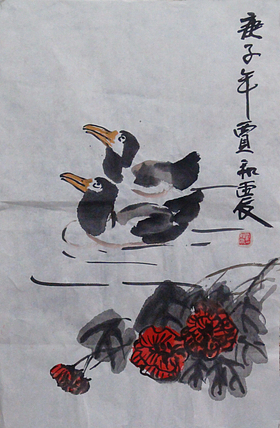 庚子年賈和震